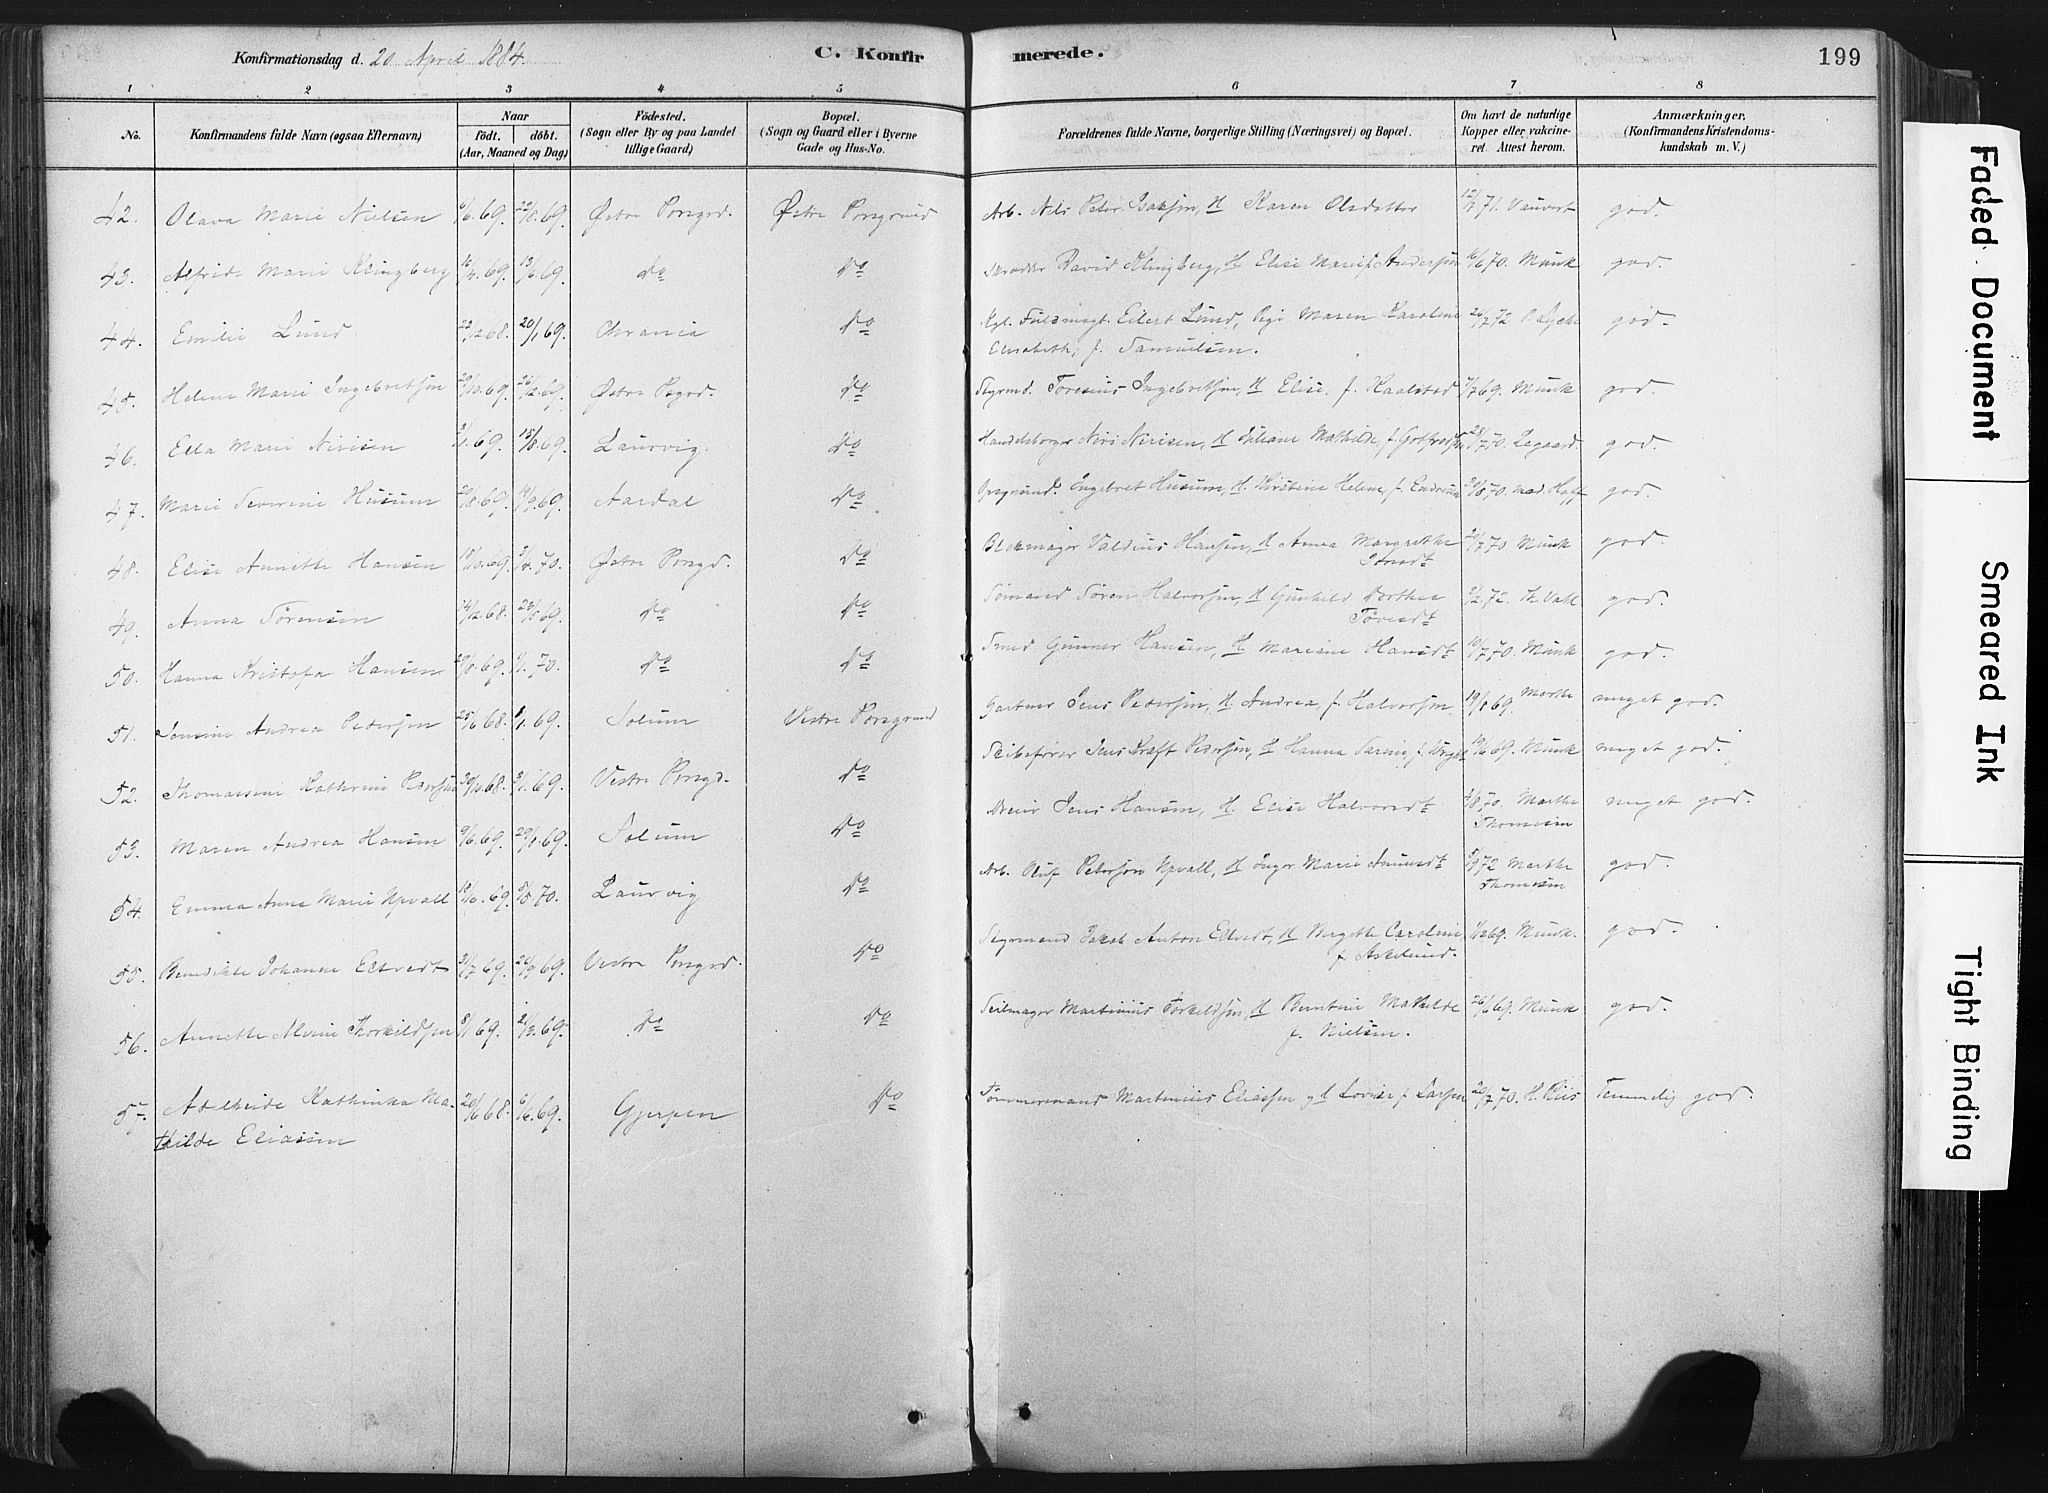 Konfirmationsdag d. 20 April 1884. C. Konfirmerede. 199
1 2 3 4 5 6 7 8
No. Konfirmandens fulde Navn (ogsaa Efternavn) Naar født. døbt. (Aar, Maaned og Dag) Fødested. (Sogn eller By og paa Landet tillige Gaard) Bopæl. (Sogn og Gaard eller i Byerne Gade og Hus-No. Forældrenes fulde Navne, borgerlige Stilling (Næringsvei) og Bopæl. Om havt de naturlige Kopper eller vakcineret. Attest herom. Anmærkninger. (Konfirmandens Kristendomskundskab m. V.)
42. Olava Marie Nielsen 6/6.69. 22/8.69. Østre Porsgrd. Østre Porsgrund Arb. Nils Peter Isaksen, H Karen Olsdatter 71. Vauvert god.
43. Alfride Marie Klingberg 16/4.69. 13/6.69. Do Do David Klingberg, H Elise Marie Andersen 16/6.70. Munk god.
44. Emilie Lund 22/12.68. 20/1.69. Chrania Do Fuldmægt. Eilert Lund, Pige Maren Karoline 26/7.72 god.
Elisabeth, f. Samuelsen.
45. Helene Marie Ingebretsen 20/10.69. 26/12.69. Østre Psgrd. Do Styrmd. Toresius Ingebretsen, H Elise, f. Kaalstad 69. Munk god.
46. Ella Marie Nirisen 69. 15/8.69. Laurvig. Do Handelsborger Niri Nirisen, H Juliane Mathilde, f. Gotfredsen 28/7.70. god.
47. Marie Severine Husum 20/8.69. 19/9.69. Aardal Do Opsynmd. Ingebret Husum, H. Kirstine Helene, f. Endresen 70. god.
48. Elise Annette Hansen 18/10.69. 70. Østre Porsgd. Do Blokmager Valdius Hansen, H Anna Margrethe 70 Munk god.
49. Anna Sørensen 14/12.68. 69. Do Do Sømand Søren Halvorsen, H Gunhild Dorthea 72. Th. Vahl god.
50. Hanna Kristofa Hansen 29/8.69. 70. Do Do Smed Gunner Hansen, H Mariane Hansdt 10/7.70. Munk god.
51. Jensine Andrea Pedersen 25/6.68. 69. Solum Vestre Porsgrund Gartner Jens Pedersen, H Andrea, f. Halvorsen 69. Marthe meget god.
52. Thomassine Kathrine Pedersen 30/10.68. 3/1.69. Vestre Porsgd. Do Skibsfører Jens Kraft Pedersen, H Hanna 69. Munk meget god.
53. Maren Andrea Hansen 9/6.69. 29/8.69. Solum Do Jens Hansen, H. Elise Halvorsdt 70. Marthe meget god.
Thomesen
54. Emma Anne Marie Upvall 18/10.69. 70. Laurvig Do Arb. Oluf Petersen Upvall, H Inger Marie Amundsdt 72 Marthe god.
Thomesen
55. Benedikte Johanne Eltvedt 31/7.69. 26/9.69. Vestre Porsgrd. Do Styrmand Jakob Anton Eltvedt, H Birgitte Caroline, 69. Munk. god.
f. Askelund.
56. Annette Alvine Thorkildsen 8/1.69. 21/3.69. Do Do Seilmager Martinius Torkildsen, H Berntine Mathilde 26/6.69. Munk god.
f. Nielsen.
57. Adelheide Kathinka Ma- 20/6.68. 6/6.69. Gjerpen Do Tømmermand Martinius Eliassen og Lovise f Larsen 20/7.70. H. Riis Temmelig god.
thilde Eliassen
Faded Document
Smeared Ink
Tight Binding